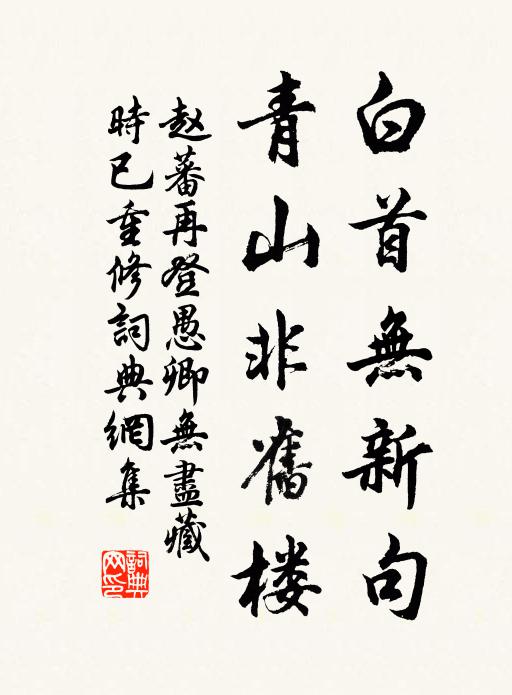 白首無新句
青山非舊楼
赵蕃再登愚卿無盡藏
時已重修詞典網集
詞典
网印